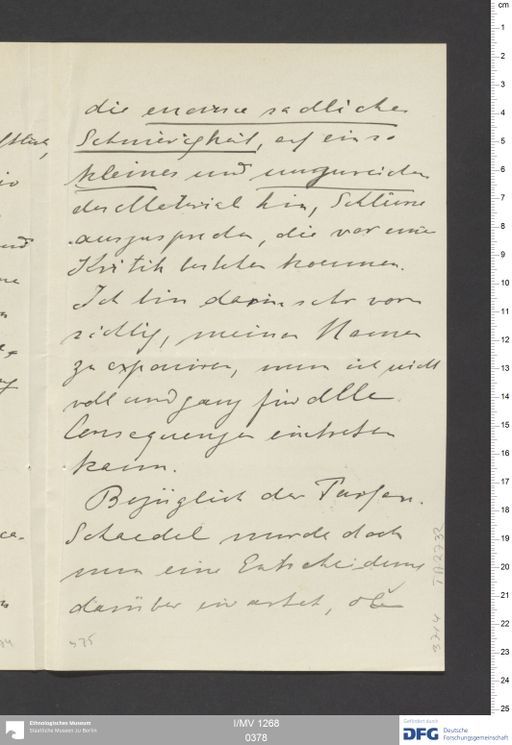 die enorme sachliche
Schwierigkeit, auf ein so
kleines und unzureichen
des Material hin, Schlüsse
auszusprechen, die vor einer
Kritik bestehen koennen.
Ich bin darin sehr vor
sichtig, meinen Namen
zu exponiren, wenn ich nicht
voll und ganz für alle
Consequenzen eintreten
kann.
Bezüglich der
Schaedel wurde doch
nun eine Entscheidung
darüber erwartet, ob
375
3714 TA 2732
I/MV 1268
0378
Ethnologisches Museum
Staatliche Museen zu Berlin
Gefördert durch
DFG Deutsche
Forschungsgemeinschaft
cm
1
2
3
4
5
6
7
8
9
10
11
12
13
14
15
16
17
18
19
20
21
22
23
24
25